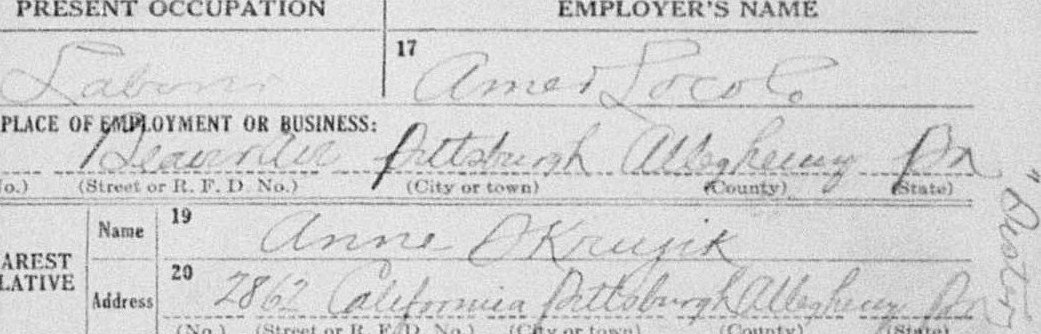 PRESENT OCCUPATION EMPLOYER'S NAME
Laborer 17 Amer Loco Co
PLACE OF EMPLOYMENT OR BUSINESS:
Beaver Ave Pittsburgh Allegheny Pa
No.) (Street or R. F. D. No.) (City or town) (County) (State)
19
Name Anne Okrujik
AREST
LATIVE
20
Address 2862 California Pittsburgh Allegheny Pa
(No.) (Street or R. F. D. No.) (City or town) (County) (State)